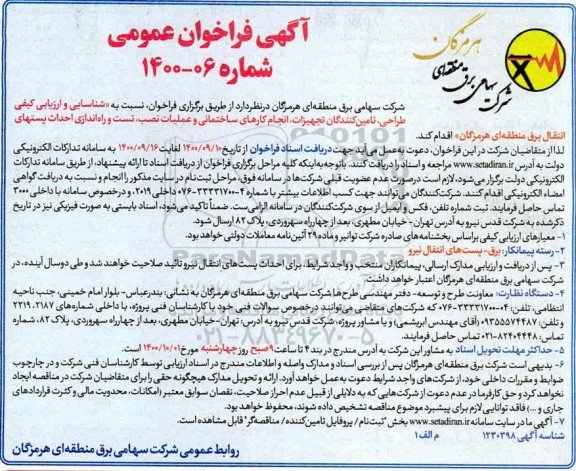 هرمزگان
شرکت سهامی برق منطقه‌ای
آگهی فراخوان عمومی
شماره ۰۶-۱۴۰۰
شرکت سهامی برق منطقه‌ای هرمزگان درنظردارد از طریق برگزاری فراخوان، نسبت به «شناسایی و ارزیابی کیفی
طراحی، تامین‌کنندگان تجهیزات، انجام کارهای ساختمانی و عملیات نصب، تست و راه‌اندازی احداث پستهای
انتقال برق منطقه‌ای هرمزگان» اقدام کند.
لذا از متقاضیان شرکت در این فراخوان، دعوت به‌عمل می‌آید جهت دریافت اسناد فراخوان از تاریخ ۱۴۰۰/۰۹/۱۰ لغایت ۱۴۰۰/۰۹/۱۶ به سامانه تدارکات الکترونیکی
دولت به آدرس www.setadiran.ir مراجعه و اسناد را دریافت کنند. باتوجه‌به‌اینکه کلیه مراحل برگزاری فراخوان از دریافت اسناد تا ارائه پیشنهاد، از طریق سامانه تدارکات
الکترونیکی دولت برگزار می‌شود، لازم است درصورت عدم عضویت قبلی شرکت‌ها در سامانه فوق، مراحل ثبت‌نام در سایت مذکور را انجام و نسبت به دریافت گواهی
امضاء الکترونیکی اقدام کنند. شرکت‌کنندگان می‌توانند جهت کسب اطلاعات بیشتر با شماره ۴-۰۷۶۳۳۳۳۱۷۰۰ داخلی ۲۰۱۹، و درخصوص سامانه با داخلی ۳۰۰۰
تماس حاصل فرمایند. ثبت شماره تلفن، فکس و ایمیل از سوی شرکت‌کنندگان در سامانه الزامی ست. ضمناً تاکید می‌شود، اسناد بایستی به صورت فیزیکی نیز در تاریخ
ذکرشده به شرکت قدس نیرو به آدرس تهران- خیابان مطهری، بعد از چهارراه سهروردی، پلاک ۸۲ ارسال شود.
۱- معیارهای ارزیابی کیفی براساس بخشنامه‌های صادره شرکت توانیر و ماده ۲۹ آئین‌نامه معاملات دولتی خواهد بود.
۲- رسته پیمانکار: برق- پست‌های انتقال نیرو
۳- پس از دریافت و ارزیابی مدارک ارسالی، پیمانکاران منتخب و واجد شرایط، برای احداث پست‌های انتقال نیرو تائید صلاحیت خواهند شد و طی دوسال آینده، در
شرکت سهامی برق منطقه‌ای هرمزگان اعتبار خواهند داشت.
۴- دستگاه نظارت: معاونت طرح و توسعه- دفتر مهندسی طرح‌ها شرکت سهامی برق منطقه‌ای هرمزگان به نشانی: بندرعباس- بلوار امام خمینی، جنب ناحیه
انتظامی، تلفن: ۴-۰۷۶۳۳۳۳۱۷۰۰ که شرکت‌های متقاضی می‌توانند درخصوص سوالات فنی خود با کارشناسان فنی پروژه، با داخلی شماره‌های ۲۱۸۷، ۲۲۱۹
و تلفن: ۰۹۳۵۵۵۷۴۴۸۷ (آقای مهندس ابریشمی) و یا مشاور پروژه، شرکت قدس نیرو به آدرس: تهران- خیابان مطهری، بعد از چهارراه سهروردی، پلاک ۸۲، شماره
تلفن: ۸۲۴۰۴۴۴۸-۰۲۱ تماس حاصل فرمایند.
۵- حداکثر مهلت تحویل اسناد به مشاور این شرکت به آدرس مندرج در بند ۴ تا ساعت ۹ صبح روز چهارشنبه مورخ ۱۴۰۰/۱۰/۰۱ است.
۶- بدیهی است شرکت برق منطقه‌ای هرمزگان پس از بررسی اسناد و مدارک واصله و اطلاعات مندرج در اسناد ارزیابی توسط کارشناسان فنی شرکت و در چارچوب
ضوابط و مقررات داخلی خود، از شرکت‌های واجد شرایط دعوت به‌عمل خواهد آورد. ارائه و تحویل مدارک هیچگونه حقی را برای متقاضیان شرکت در مناقصه ایجاد
نخواهد کرد و حق کارفرما در عدم دعوت از شرکت‌هایی که به دلایلی از قبیل عدم احراز صلاحیت، نقصان سوابق معتبر (امکانات، مدیریت مالی و کثرت قراردادهای
جاری و ...) فاقد توانایی لازم برای پیشبرد موضوع مناقصه تشخیص داده شوند، محفوظ خواهد بود.
۷- آگهی ما در سایت سامانه www.setadiran.ir بخش "ثبت‌نام / پروفایل تامین‌کننده / مناقصه‌گر" قابل مشاهده است.
شناسه آگهی ۱۲۳۰۳۹۸ م الف ۱
روابط عمومی شرکت سهامی برق منطقه‌ای هرمزگان